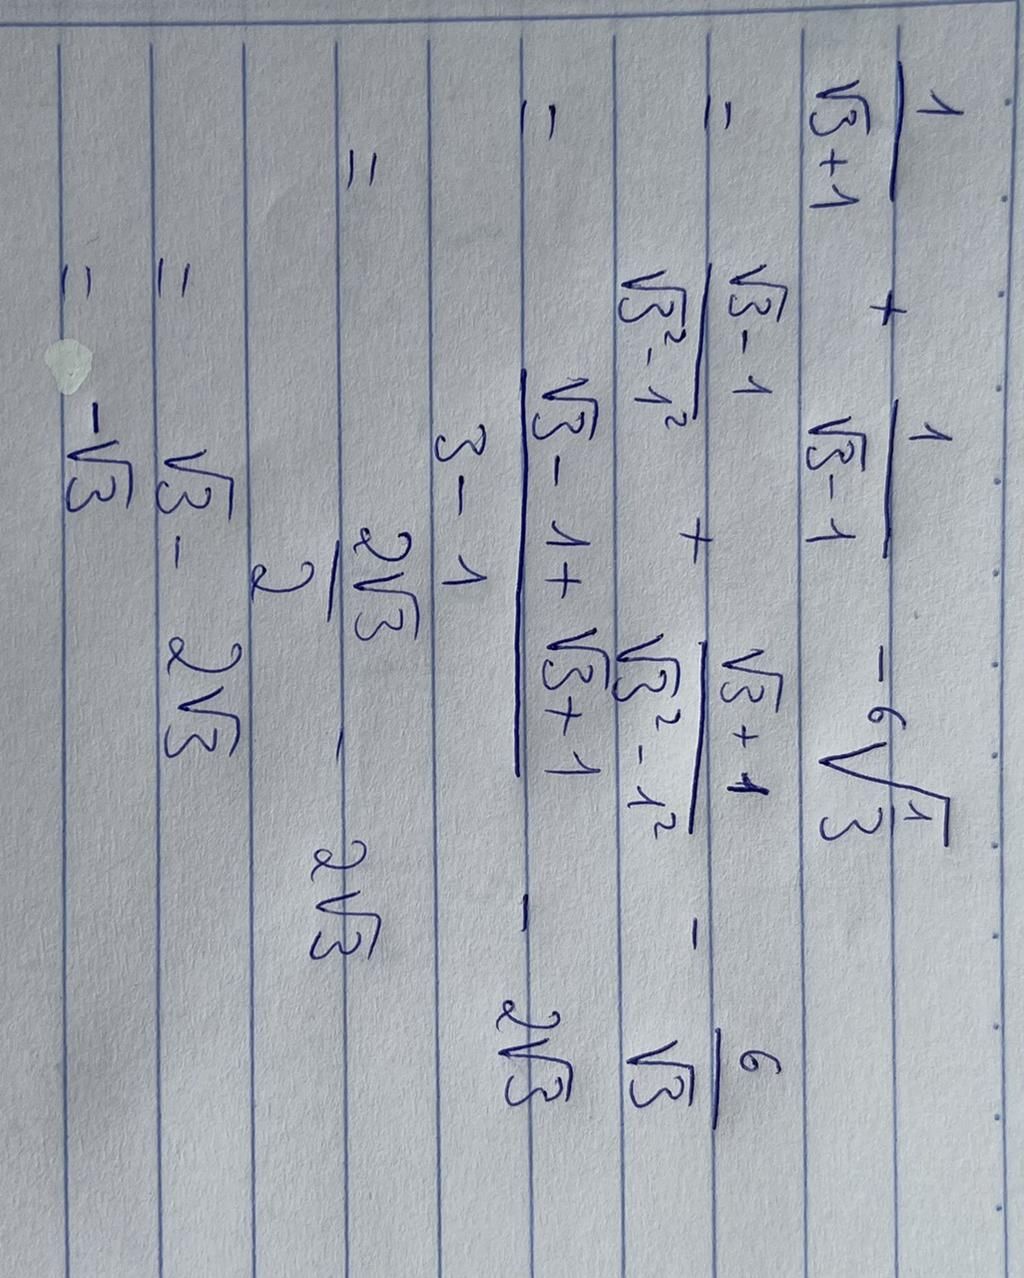 1/(√3+1) + 1/(√3-1) - 6√(1/3)
= (√3-1)/(√3²-1²) + (√3+1)/(√3²-1²) - 6/√3
= (√3-1+√3+1)/(3-1) - 2√3
= 2√3/2 - 2√3
= √3 - 2√3
= -√3